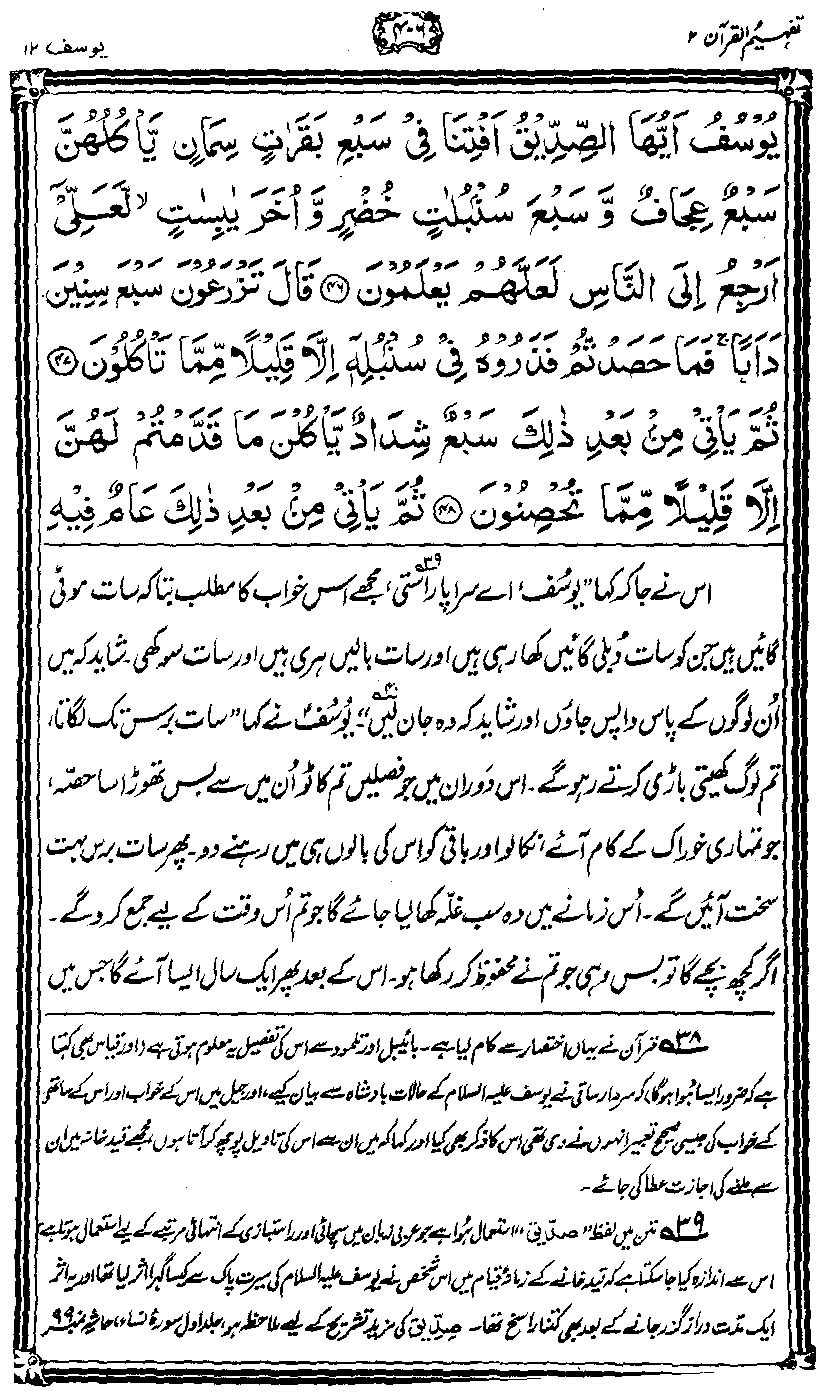 تفہیم القرآن ۲
۴۰۶
یوسف ۱۲
يُوْسُفُ اَيُّهَا الصِّدِّيْقُ اَفْتِنَا فِيْ سَبْعِ بَقَرٰتٍ سِمَانٍ يَّاْكُلُهُنَّ
سَبْعٌ عِجَافٌ وَّ سَبْعِ سُنْۢبُلٰتٍ خُضْرٍ وَّ اُخَرَ يٰبِسٰتٍ ۙ لَّعَلِّيْۤ
اَرْجِعُ اِلَى النَّاسِ لَعَلَّهُمْ يَعْلَمُوْنَ ﴿۴۶﴾ قَالَ تَزْرَعُوْنَ سَبْعَ سِنِيْنَ
دَاَبًا ۚ فَمَا حَصَدْتُّمْ فَذَرُوْهُ فِيْ سُنْۢبُلِهٖۤ اِلَّا قَلِيْلًا مِّمَّا تَاْكُلُوْنَ ﴿۴۷﴾
ثُمَّ يَاْتِيْ مِنْۢ بَعْدِ ذٰلِكَ سَبْعٌ شِدَادٌ يَّاْكُلْنَ مَا قَدَّمْتُمْ لَهُنَّ
اِلَّا قَلِيْلًا مِّمَّا تُحْصِنُوْنَ ﴿۴۸﴾ ثُمَّ يَاْتِيْ مِنْۢ بَعْدِ ذٰلِكَ عَامٌ فِيْهِ
اس نے جا کر کہا ”یوسُف، اے سراپا راستی۳۹، مجھے اس خواب کا مطلب بتا کہ سات موٹی
گائیں ہیں جن کو سات دُبلی گائیں کھا رہی ہیں اور سات بالیں ہری ہیں اور سات سوکھی۔ شاید کہ میں
اُن لوگوں کے پاس واپس جاؤں اور شاید کہ وہ جان لیں۴۰“۔ یوسُفؑ نے کہا ”سات برس تک لگاتار
تم لوگ کھیتی باڑی کرتے رہو گے۔ اس دَوران میں جو فصلیں تم کاٹو اُن میں سے بس تھوڑا سا حصّہ،
جو تمہاری خوراک کے کام آئے، نکالو اور باقی کو اس کی بالوں ہی میں رہنے دو۔ پھر سات برس بہت
سخت آئیں گے۔ اُس زمانے میں وہ سب غلّہ کھا لیا جائے گا جو تم اُس وقت کے لیے جمع کرو گے۔
اگر کچھ بچے گا تو بس وہی جو تم نے محفوظ کر رکھا ہو۔ اس کے بعد پھر ایک سال ایسا آئے گا جس میں
۳۸ قرآن نے بیاں اختصار سے کام لیا ہے۔ بائیبل اور تلمود سے اس کی تفصیل یہ معلوم ہوتی ہے (اور قیاس بھی کہتا
ہے کہ ضرور ایسا ہُوا ہوگا) کہ سردار ساقی نے یوسف علیہ السلام کے حالات بادشاہ سے بیان کیے، اور جیل میں اس کے خواب اور اس کے ساتھی
کے خواب کی جیسی صحیح تعبیر انہوں نے دی تھی اس کا ذکر بھی کیا اور کہا کہ میں ان سے اس کی تاویل پوچھ کر آتا ہوں، مجھے قید خانہ میں ان
سے ملنے کی اجازت عطا کی جائے۔
۳۹ متن میں لفظ ”صدّیق“ استعمال ہُوا ہے جو عربی زبان میں سچائی اور راستبازی کے انتہائی مرتبے کے لیے استعمال ہوتا ہے
اس سے اندازہ کیا جا سکتا ہے کہ قید خانے کے زمانۂ قیام میں اس شخص نے یوسف علیہ السلام کی سیرت پاک سے کیسا گہرا اثر لیا تھا اور یہ اثر
ایک مدّت دراز گزر جانے کے بعد بھی کتنا راسخ تھا۔ صدّیق کی مزید تشریح کے لیے ملاحظہ ہو، جلد اول سورۂ نساء، حاشیہ نمبر ۹۹